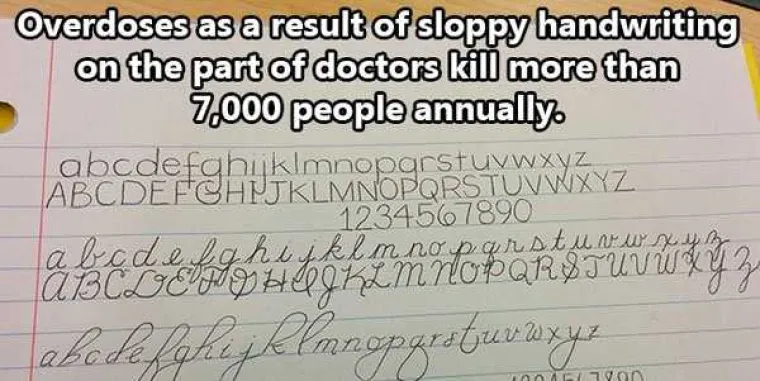 Overdoses as a result of sloppy handwriting
on the part of doctors kill more than
7,000 people annually.
abcdefghijklmnopqrstuvwxyz
ABCDEFGHIJKLMNOPQRSTUVWXYZ
1234567890
abcdefghijklmnopqrstuvwxyz
ABCDEFGHIJKLMNOPQRSTUVWXYZ
abcdefghijklmnopqrstuvwxyz